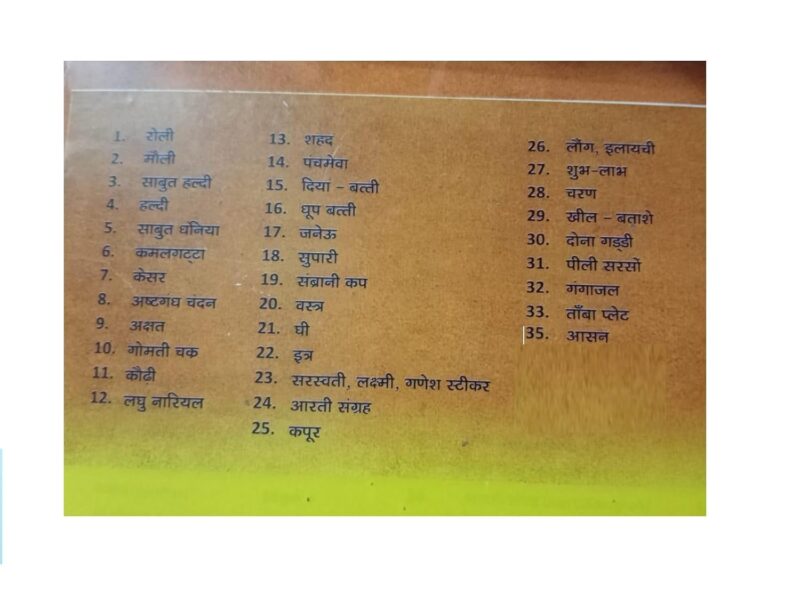 1. रोली
2. मौली
3. साबुत हल्दी
4. हल्दी
5. साबुत धनिया
6. कमलगट्टा
7. केसर
8. अष्टगंध चंदन
9. अक्षत
10. गोमती चक्र
11. कौढी
12. लघु नारियल
13. शहद
14. पंचमेवा
15. दिया – बत्ती
16. धूप बत्ती
17. जनेऊ
18. सुपारी
19. संब्रानी कप
20. वस्त्र
21. घी
22. इत्र
23. सरस्वती, लक्ष्मी, गणेश स्टीकर
24. आरती संग्रह
25. कपूर
26. लौंग, इलायची
27. शुभ-लाभ
28. चरण
29. खील – बताशे
30. दोना गड्डी
31. पीली सरसों
32. गंगाजल
33. ताँबा प्लेट
35. आसन